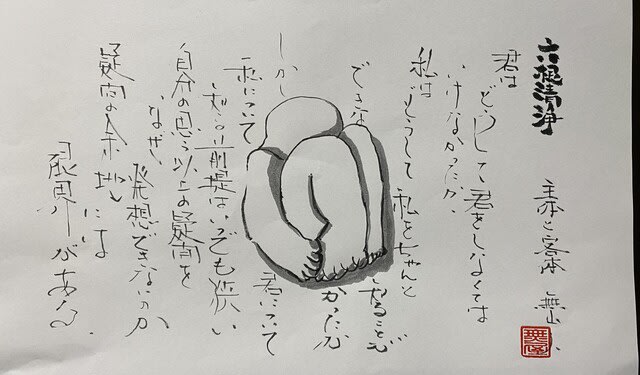 六根清浄
主体と客体 無山
君は
どうして君をしなくては
いけなかったか、
私は
どうして私をちゃんと
できな
かったか
しかし
君について
私について
前提はいつでも淡い
自分の思う以上の疑問を
なぜ、
発想できないのか
疑問の余地には
限界がある。